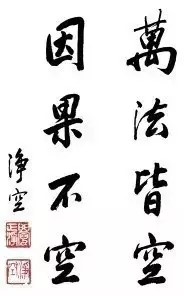 萬法皆空
因果不空
净空